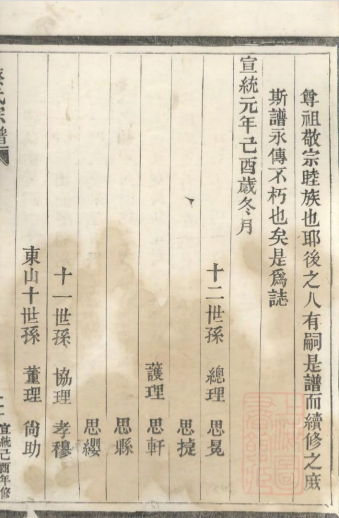 尊祖敬宗睦族也耶後之人有嗣是譜而續修之庶
斯譜永傳不朽也矣是爲誌
宣統元年己酉歲冬月
十二世孫 總理 思晃
思捷
護理 思軒
思縣
思纓
十一世孫 協理 孝穆
東山十世孫 董理 尙助
氏宗譜
宣統己酉年修